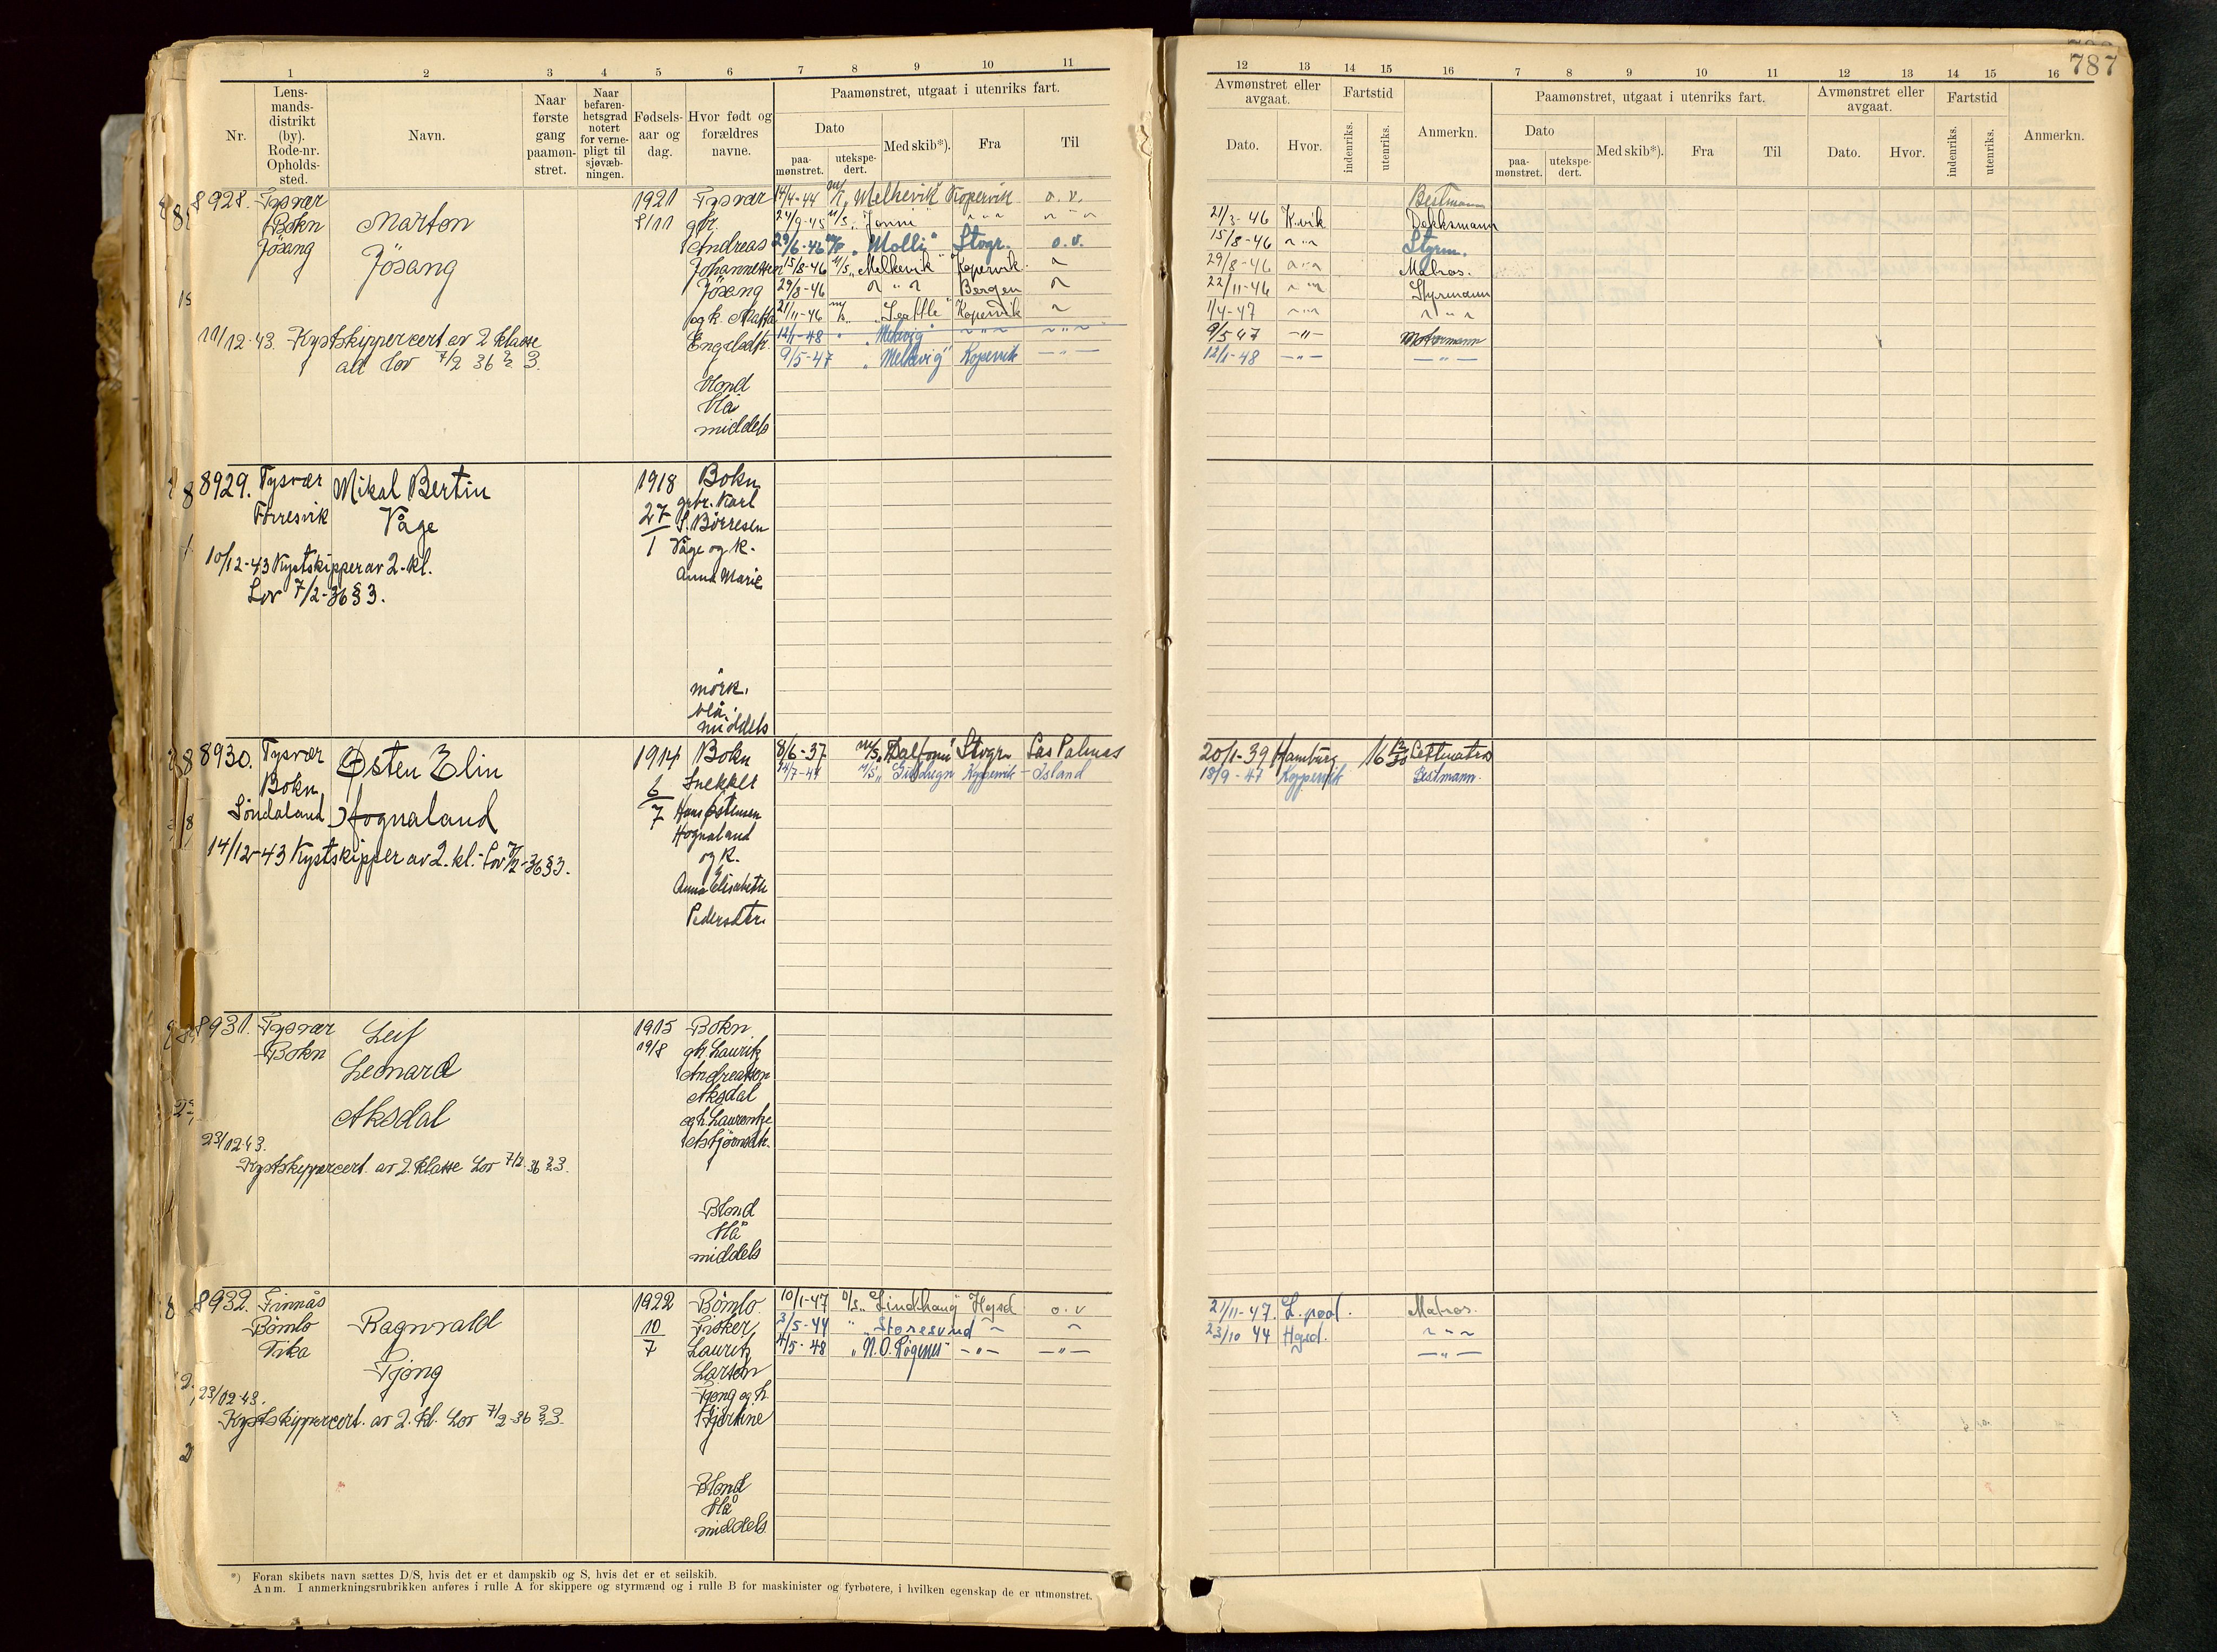 787
1 2 3 4 5 6 7 8 9 10 11
12 13 14 15 16 7 8 9 10 11 12 13 14 15 16
Nr.
Lens-
mands-
distrikt
(by).
Rode-nr.
Opholds-
sted.
Navn.
Naar
første
gang
paamøn-
stret.
Naar
befaren-
hetsgrad
notert
for verne-
pligt til
sjøvæb-
ningen.
Fødsels-
aar og
dag.
Hvor født og
forældres
navne.
Paamønstret, utgaat i utenriks fart.
Dato
paa-
mønstret.
utekspe-
dert.
Med skib*).
Fra
Til
Avmønstret eller
avgaat.
Dato.
Hvor.
Fartstid
indenriks.
utenriks.
Anmerkn.
Paamønstret, utgaat i utenriks fart.
Dato
paa-
mønstret.
utekspe-
dert.
Med skib*).
Fra
Til
Avmønstret eller
avgaat.
Dato.
Hvor.
Fartstid
indenriks.
utenriks.
Anmerkn.
8928.
Tysvær
Bokn
Jösang
Marton
Jösang
11/12-43. Kystskippercert. av 2 klasse
alt lov 7/2 36 § 3.
1921
8/11
Tysvær
gbr.
Andreas
Johannessen
Jösang
og h. Marta
Engelsdtr.
blond
blå
middels
14/4-44 Melkevik Kopervik o.v.
24/9-45 M/S „Jonni" " " "
29/6-46 „Molli" Stvgr. o.v.
15/8-46 M/S „Melkevik" Kopervik "
29/8-46 " " " Bergen "
21/11-46 „Seattle" Kopervik "
12/1-48 " Melkvig " " "
9/5-47 „Melkvig" Kopervik — " —
Bestmann
21/3-46 K.vik Dekksmann
15/8-46 " " Styrm.
29/8-46 " " Matros.
22/11-46 " " Styrmann
1/4-47 " " " " "
9/5 47 — " — Motormann
12/1-48 — " — — " —
8929.
Tysvær
Förresvik
Mikal Bertin
Våge
10/12-43 Kystskipper av 2-kl.
Lov 7/2-36 § 3.
1918
27
1
Bokn
gbr. Karl
S. Börresen
Våge og k.
Anna Marie
mörk.
blå.
middels
8930.
Tysvær
Bokn
Østen Elin
Hognaland
14/12-43 Kystskipper av 2. kl.-Lov 7/2-36 § 3.
1914
6
7
Bokn
Hans Østensen
Hognaland
og k.
Anna Elisabeth
Pedersdtr.
8/6-37 M/S Stvgr. Las Palmas
14/7-47 M/S Kopervik Island
20/1-39 Hamburg Lettmatros
18/9-47 Kopervik Bestmann.
8931.
Tysvær
Bokn
Leif
Leonard
Aksdal
23/12-43.
Kystskippercert. av 2. klasse Lov 7/2-36 § 3.
1915
19/8
Bokn
gbr. Lauritz
Andreassen
Aksdal
og h. Laurentze
Asbjörnsdtr.
Blond
blå
middels
8932.
Finnås
Bömlo
Vika
Ragnvald
Fjong
23/12-43.
Kystskippercert. av 2. kl. Lov 7/2-36 § 3.
1922
10
7
Bömlo
Fisker
Lauritz
Larsen
Fjong og h.
Hjertine
Blond
blå
middels
10/1-47 D/S „Lindhaug" Hgsd o.v
3/5-44 " Storesund " "
4/5-48 „N.O. Røgenes" — " — — " —
21/11-47. L.pool. Matros.
23/10 44 Hgsd. " " "
— " —
*) Foran skibets navn sættes D/S, hvis det er et dampskib og S, hvis det er et seilskib.
Anm. I anmerkningsrubrikken anføres i rulle A for skippere og styrmænd og i rulle B for maskinister og fyrbøtere, i hvilken egenskap de er utmønstret.